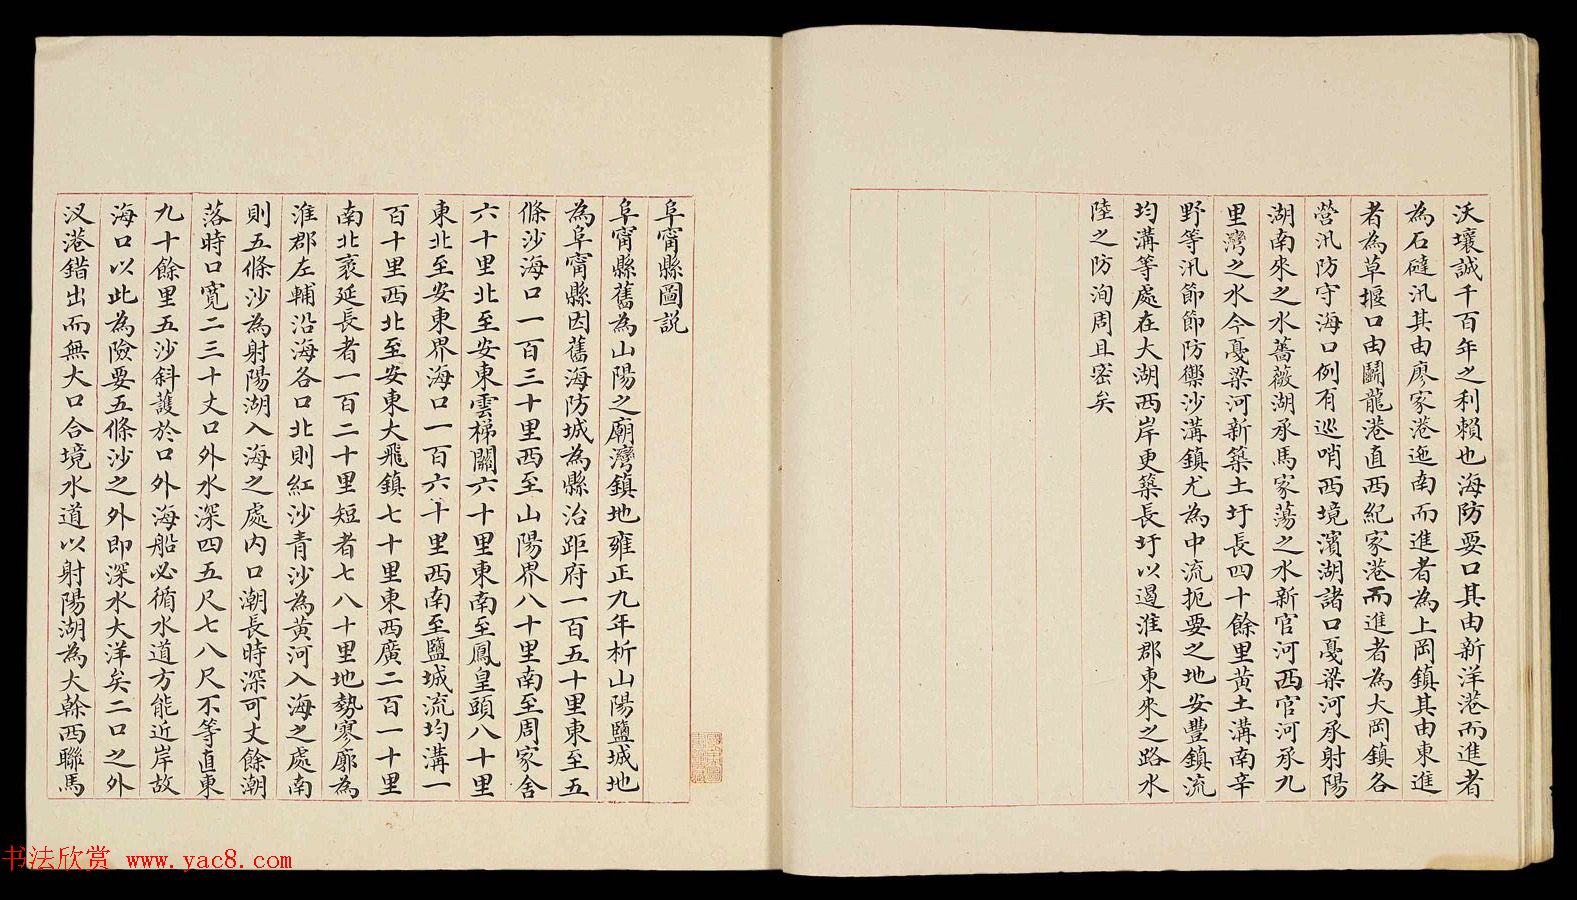 沃壤誠千百年之利賴也海防要口其由新洋港而進者
為石䃮汛其由廖家港迤南而進者為上岡鎮其由東進
者為草堰口由鬭龍港直西紀家港而進者為大岡鎮各
營汛防守海口例有巡哨西境濱湖諸口戞梁河承射陽
湖南來之水薔薇湖承馬家蕩之水新官河西官河承九
里灣之水今戞梁河新築土圩長四十餘里黃土溝南辛
野等汛節節防禦沙溝鎮尤為中流扼要之地安豐鎮流
均溝等處在大湖西岸更築長圩以遏淮郡東來之路水
陸之防洵周且密矣
阜甯縣圖説
阜甯縣舊為山陽之廟灣鎮地雍正九年析山陽鹽城地
為阜甯縣因舊海防城為縣治距府一百五十里東至五
條沙海口一百三十里西至山陽界八十里南至周家舍
六十里北至安東雲梯關六十里東南至鳳皇頭八十里
東北至安東界海口一百六十里西南至鹽城流均溝一
百十里西北至安東大飛鎮七十里東西廣二百一十里
南北袤延長者一百二十里短者七八十里地勢寥廓為
淮郡左輔沿海各口北則紅沙青沙為黃河入海之處南
則五條沙為射陽湖入海之處內口潮長時深可丈餘潮
落時口寬二三十丈口外水深四五尺七八尺不等直東
九十餘里五沙斜護於口外海船必循水道方能近岸故
海口以此為險要五條沙之外即深水大洋矣二口之外
汊港錯出而無大口合境水道以射陽湖為大榦西聯馬
书法欣赏 www.yac8.com